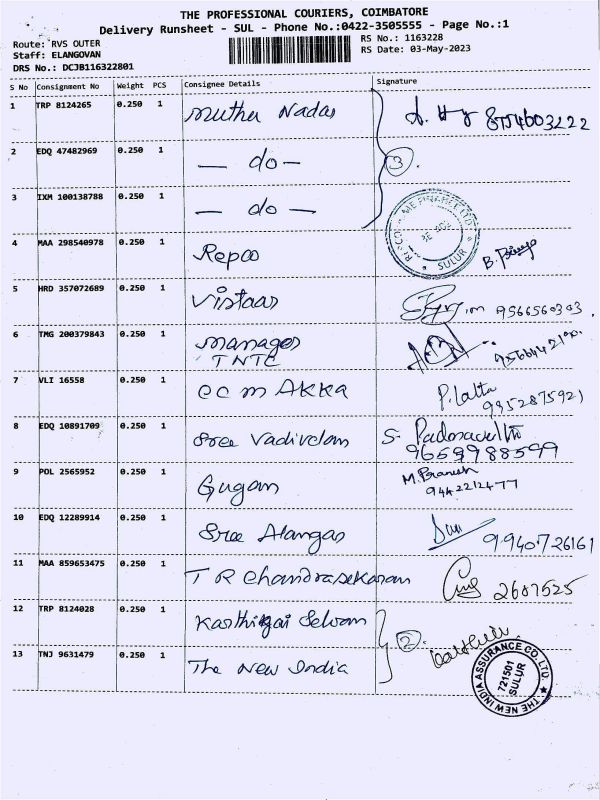 THE PROFESSIONAL COURIERS, COIMBATORE
Delivery Runsheet - SUL - Phone No.:0422-3505555 - Page No.:1
Route: RVS OUTER
Staff: ELANGOVAN
DRS No.: DCJB116322801
RS No.: 1163228
RS Date: 03-May-2023
S No Consignment No Weight PCS Consignee Details Signature
1 TRP 8124265 0.250 1 Muthu Nadar
2 EDQ 47482969 0.250 1 — do — 3.
3 IXM 100138788 0.250 1 — do —
4 MAA 298540978 0.250 1 Repco
SULUR
5 HRD 357072689 0.250 1 Vistaar 9566560303
6 TMG 200379843 0.250 1 Manager
TNTC
7 VLI 16558 0.250 1 CCM AKKA P. Lalta
9952875921
8 EDQ 10891709 0.250 1 Sree Vadivelan S.
9659988599
9 POL 2565952 0.250 1 Gugan
9442212477
10 EDQ 12289914 0.250 1 Sree Alangar 9940726161
11 MAA 859653475 0.250 1 T R Chandrasekaran 2687525
12 TRP 8124028 0.250 1 Karthigai Selvam 2.
13 TNJ 9631479 0.250 1 The New India
THE NEW INDIA ASSURANCE CO. LTD.
721501
SULUR